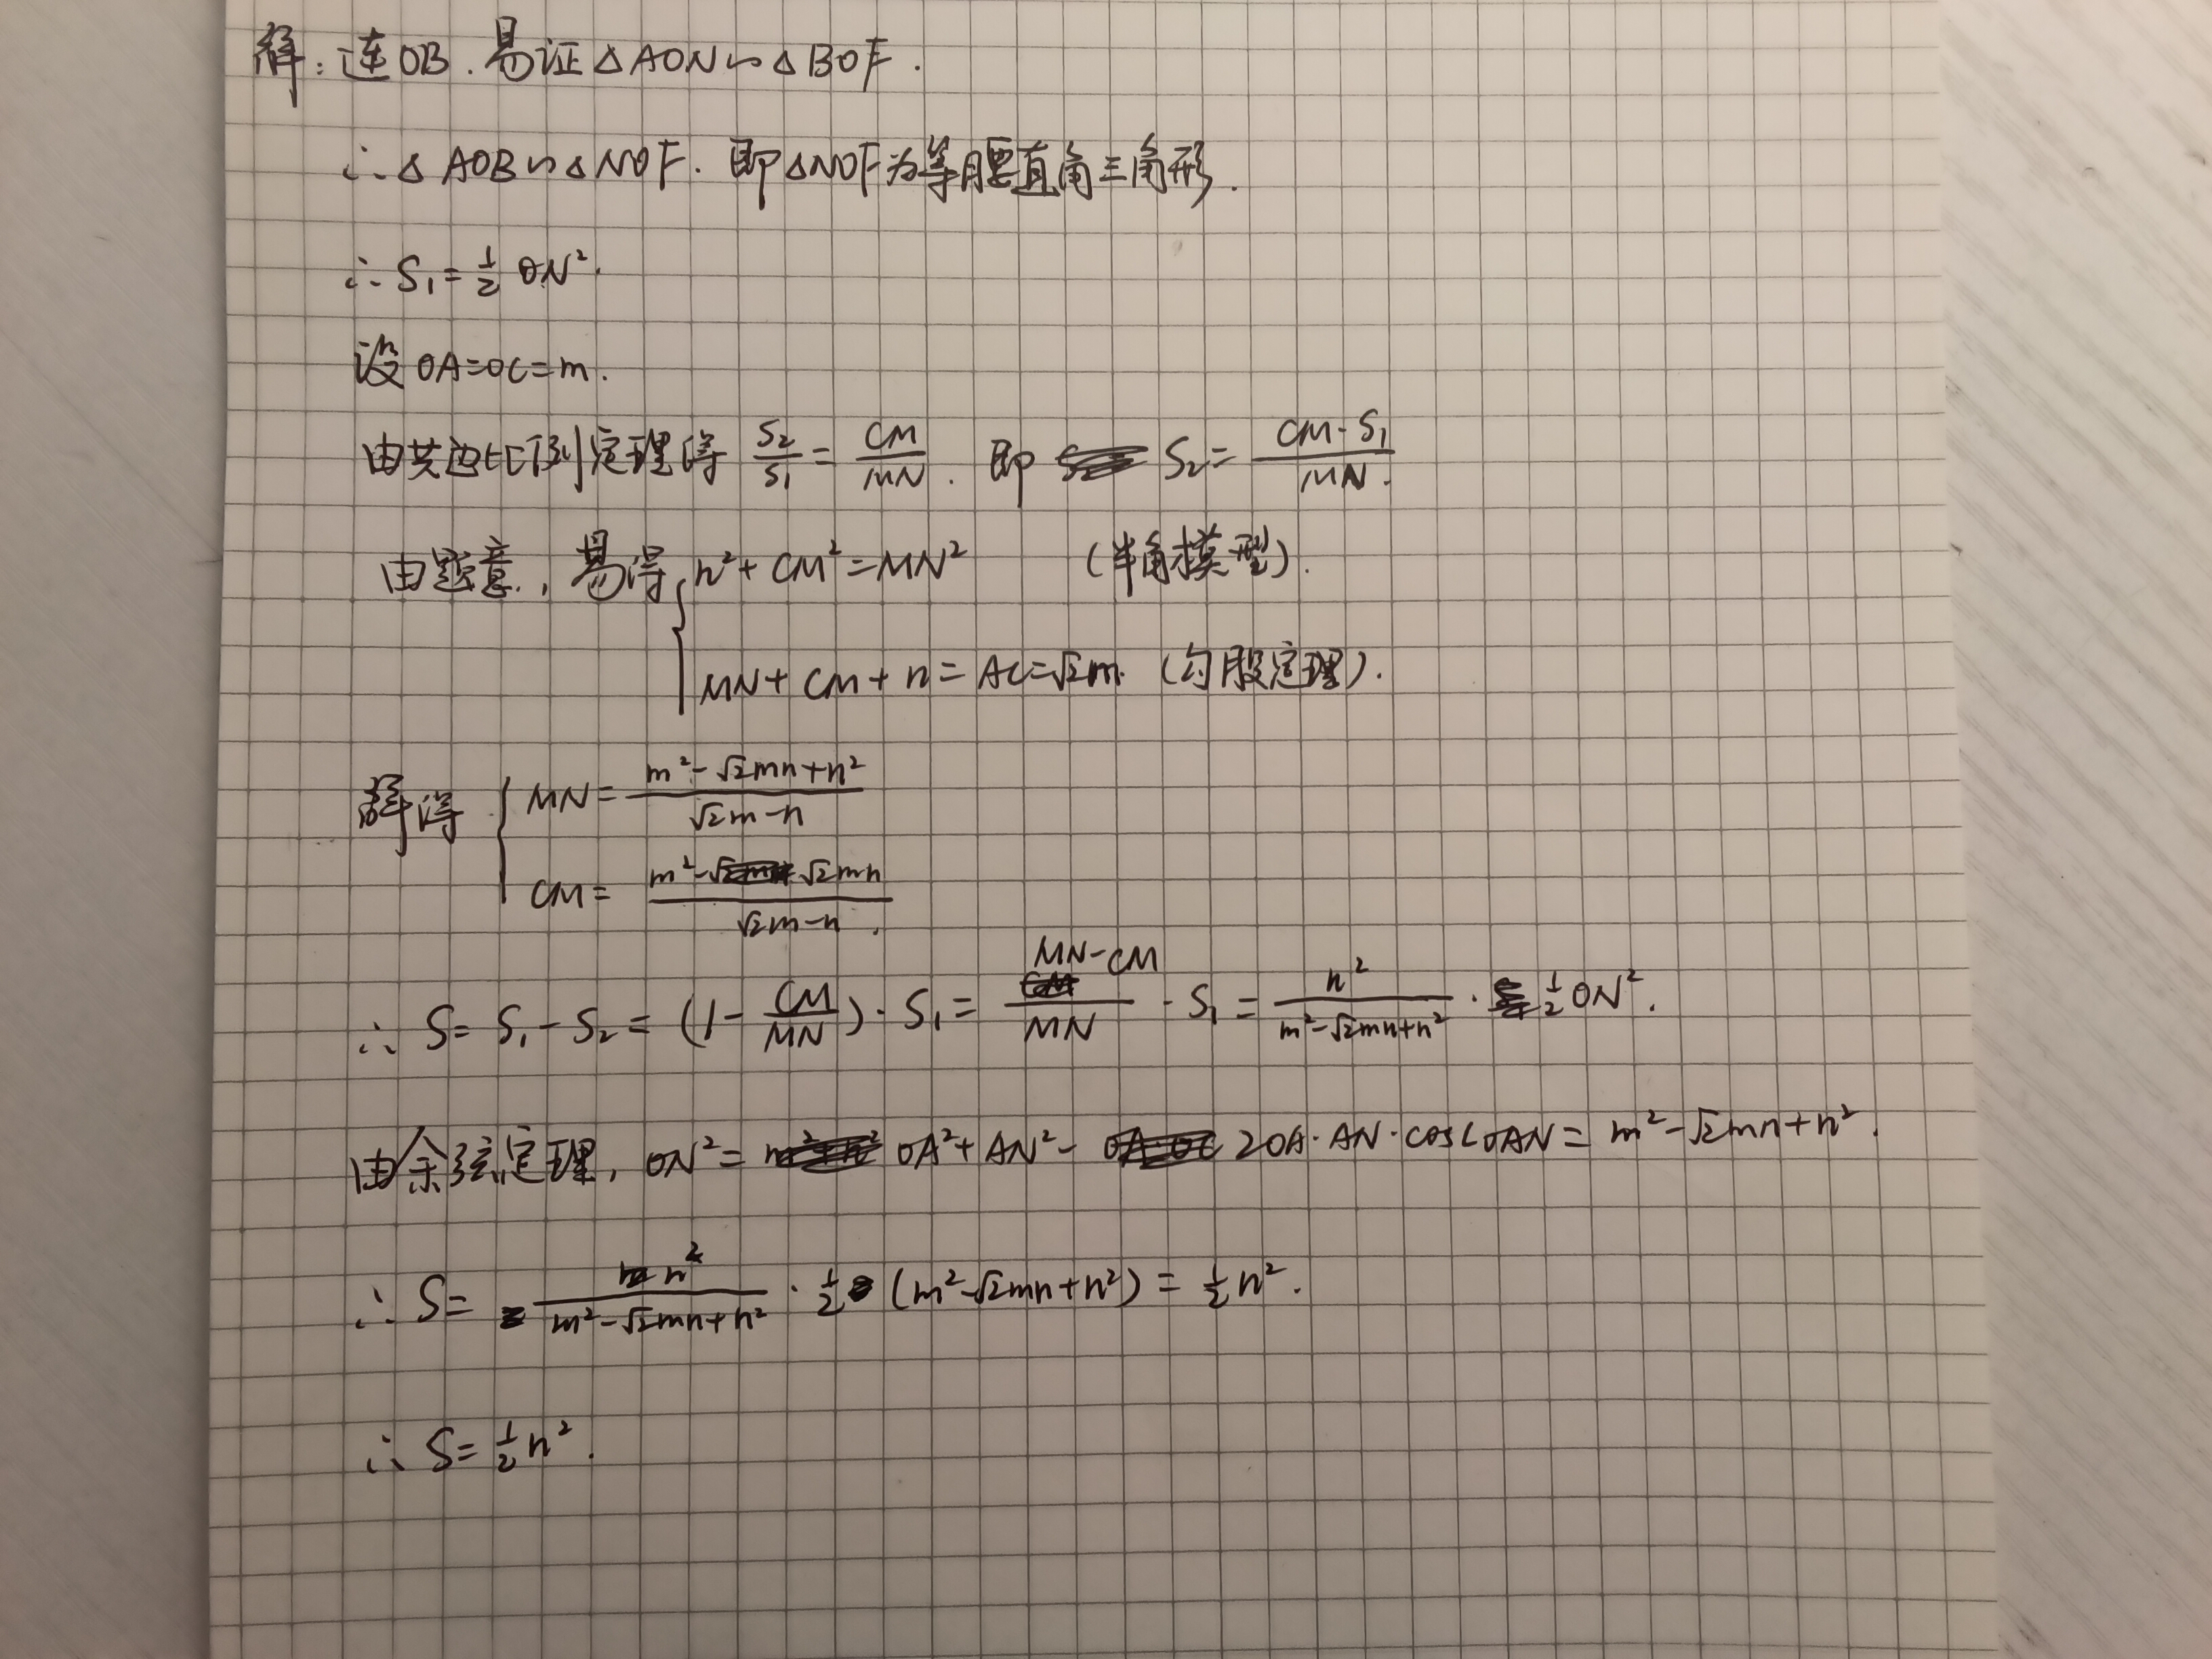 解：连OB．易证△AON∽△BOF．
∴△AOB∽△NOF．即△NOF为等腰直角三角形．
∴S₁=½ON²．
设OA=OC=m．
由共边比例定理得 S₂/S₁ = CM/MN．即 S₂= CM·S₁/MN．
由题意，易得 { n²+CM²=MN² （半角模型）．
MN+CM+n=AC=√2m．（勾股定理）．
解得 { MN= (m²-√2mn+n²)/(√2m-n)
CM= (m²-√2mn)/(√2m-n)．
∴ S=S₁-S₂=(1-CM/MN)·S₁= (MN-CM)/MN ·S₁= n²/(m²-√2mn+n²) ·½ON²．
由余弦定理，ON²= OA²+AN²- 2OA·AN·cos∠OAN= m²-√2mn+n²．
∴ S= n²/(m²-√2mn+n²) ·½(m²-√2mn+n²)=½n²．
∴ S=½n²．